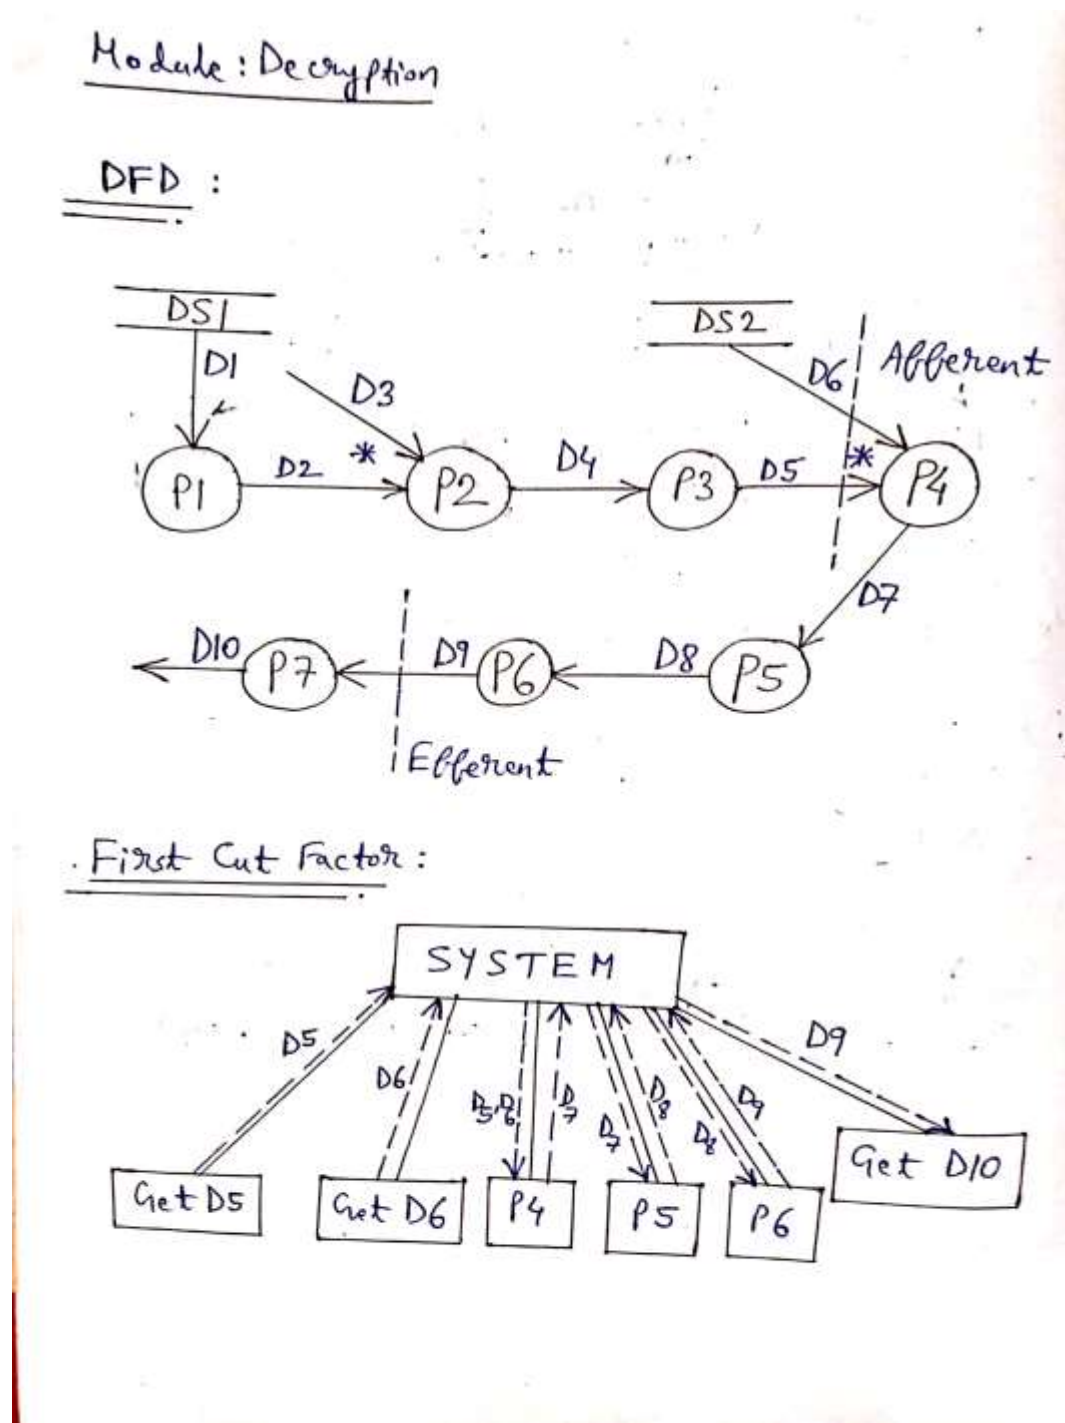 Module : Decryption
DFD :
DS1
DS2
D1
D3
D6
Afferent
P1
D2
*
P2
D4
P3
D5
*
P4
D7
D10
P7
D9
P6
D8
P5
Efferent
First Cut Factor :
SYSTEM
D5
D6
D5,D6
D7
D7
D8
D8
D9
D9
Get D5
Get D6
P4
P5
P6
Get D10